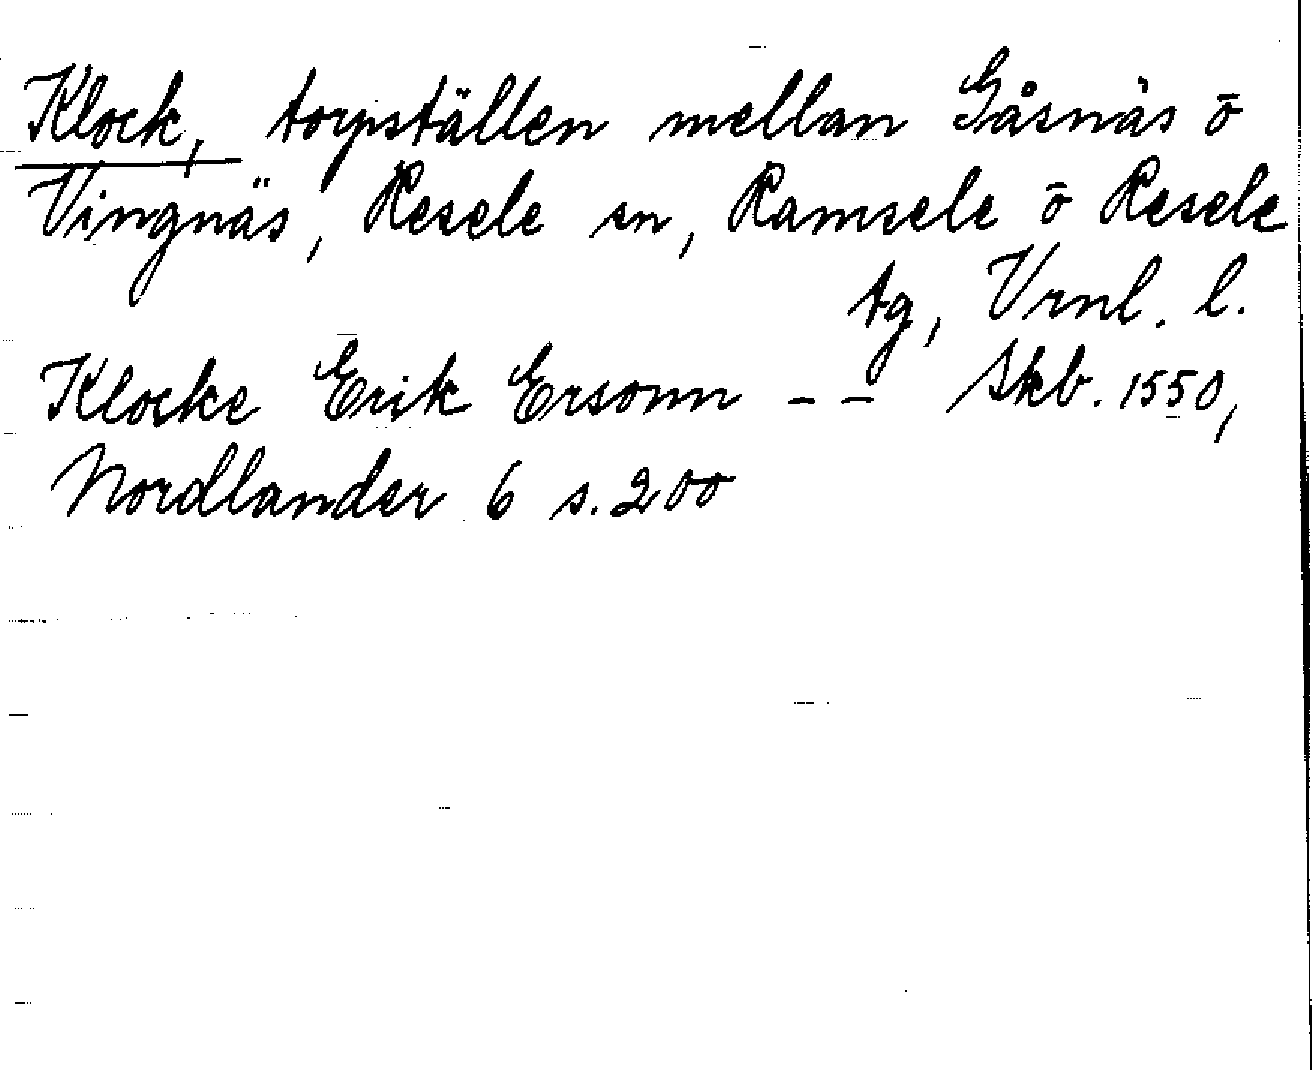 Klock, torpställen mellan Gåsnäs ō
Vingnäs, Resele sn, Ramsele ō Resele
tg, Vrnl. l.
Klocke Erik Ersonn -- Skb. 1550,
Nordlander 6 s. 200